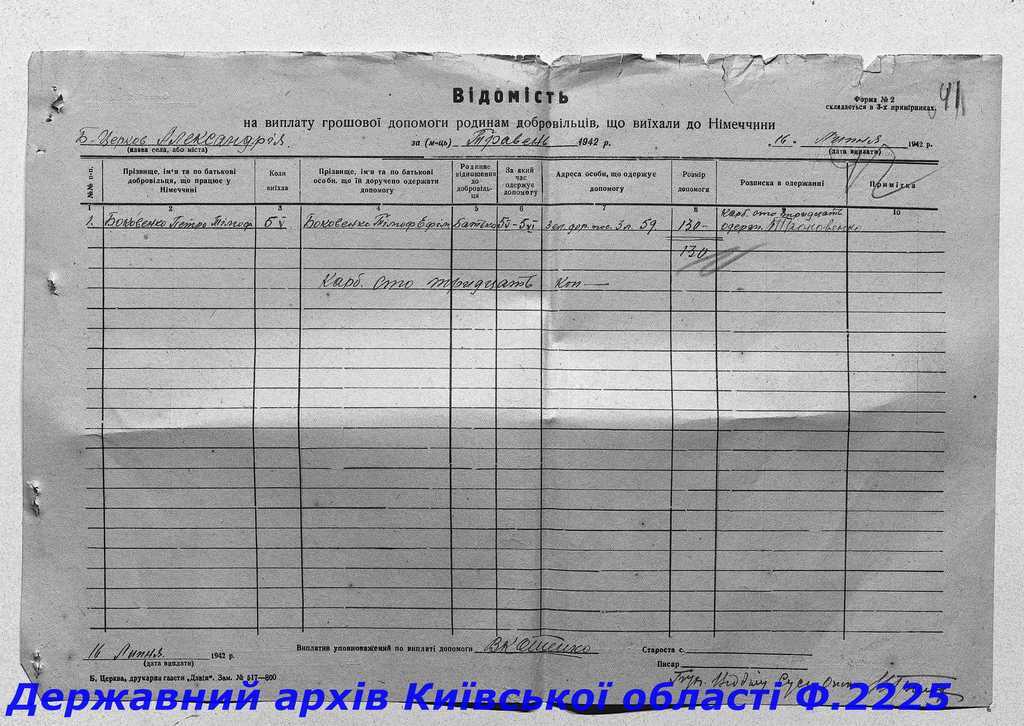 41
Відомість
Форма № 2
складається в 3-х примірниках.
на виплату грошової допомоги родинам добровільців, що виїхали до Німеччини
Б-Церков Александрія.
(назва села, або міста)
за (м-ць) Травень 1942 р.
16 Липня 1942 р.
(дата виплати)
№№ п-п.
Прізвище, ім'я та по батькові добровільця, що працює у Німеччині
Коли виїхав
Прізвище, ім'я та по батькові особи, що їй доручено одержати допомогу
Родинне відношення до добровільця
За який час одержує допомогу
Адреса особи, що одержує допомогу
Розмір допомоги
Розписка в одержанні
Примітка
1 2 3 4 5 6 7 8 9 10
1. Боковенко Петро Тимоф. 5 V Боковенко Тимоф Ефим Батько 5V-5VI 59 130- Карб. сто тридцать
130
Карб. сто тридцать Коп —
16 Липня 1942 р.
(дата виплати)
Виплатив уповноважений по виплаті допомоги
Староста с.
Писар
Б. Церква, друкарня газети „Дзвін". Зам. № 517—800
Державний архів Київської області Ф.2225